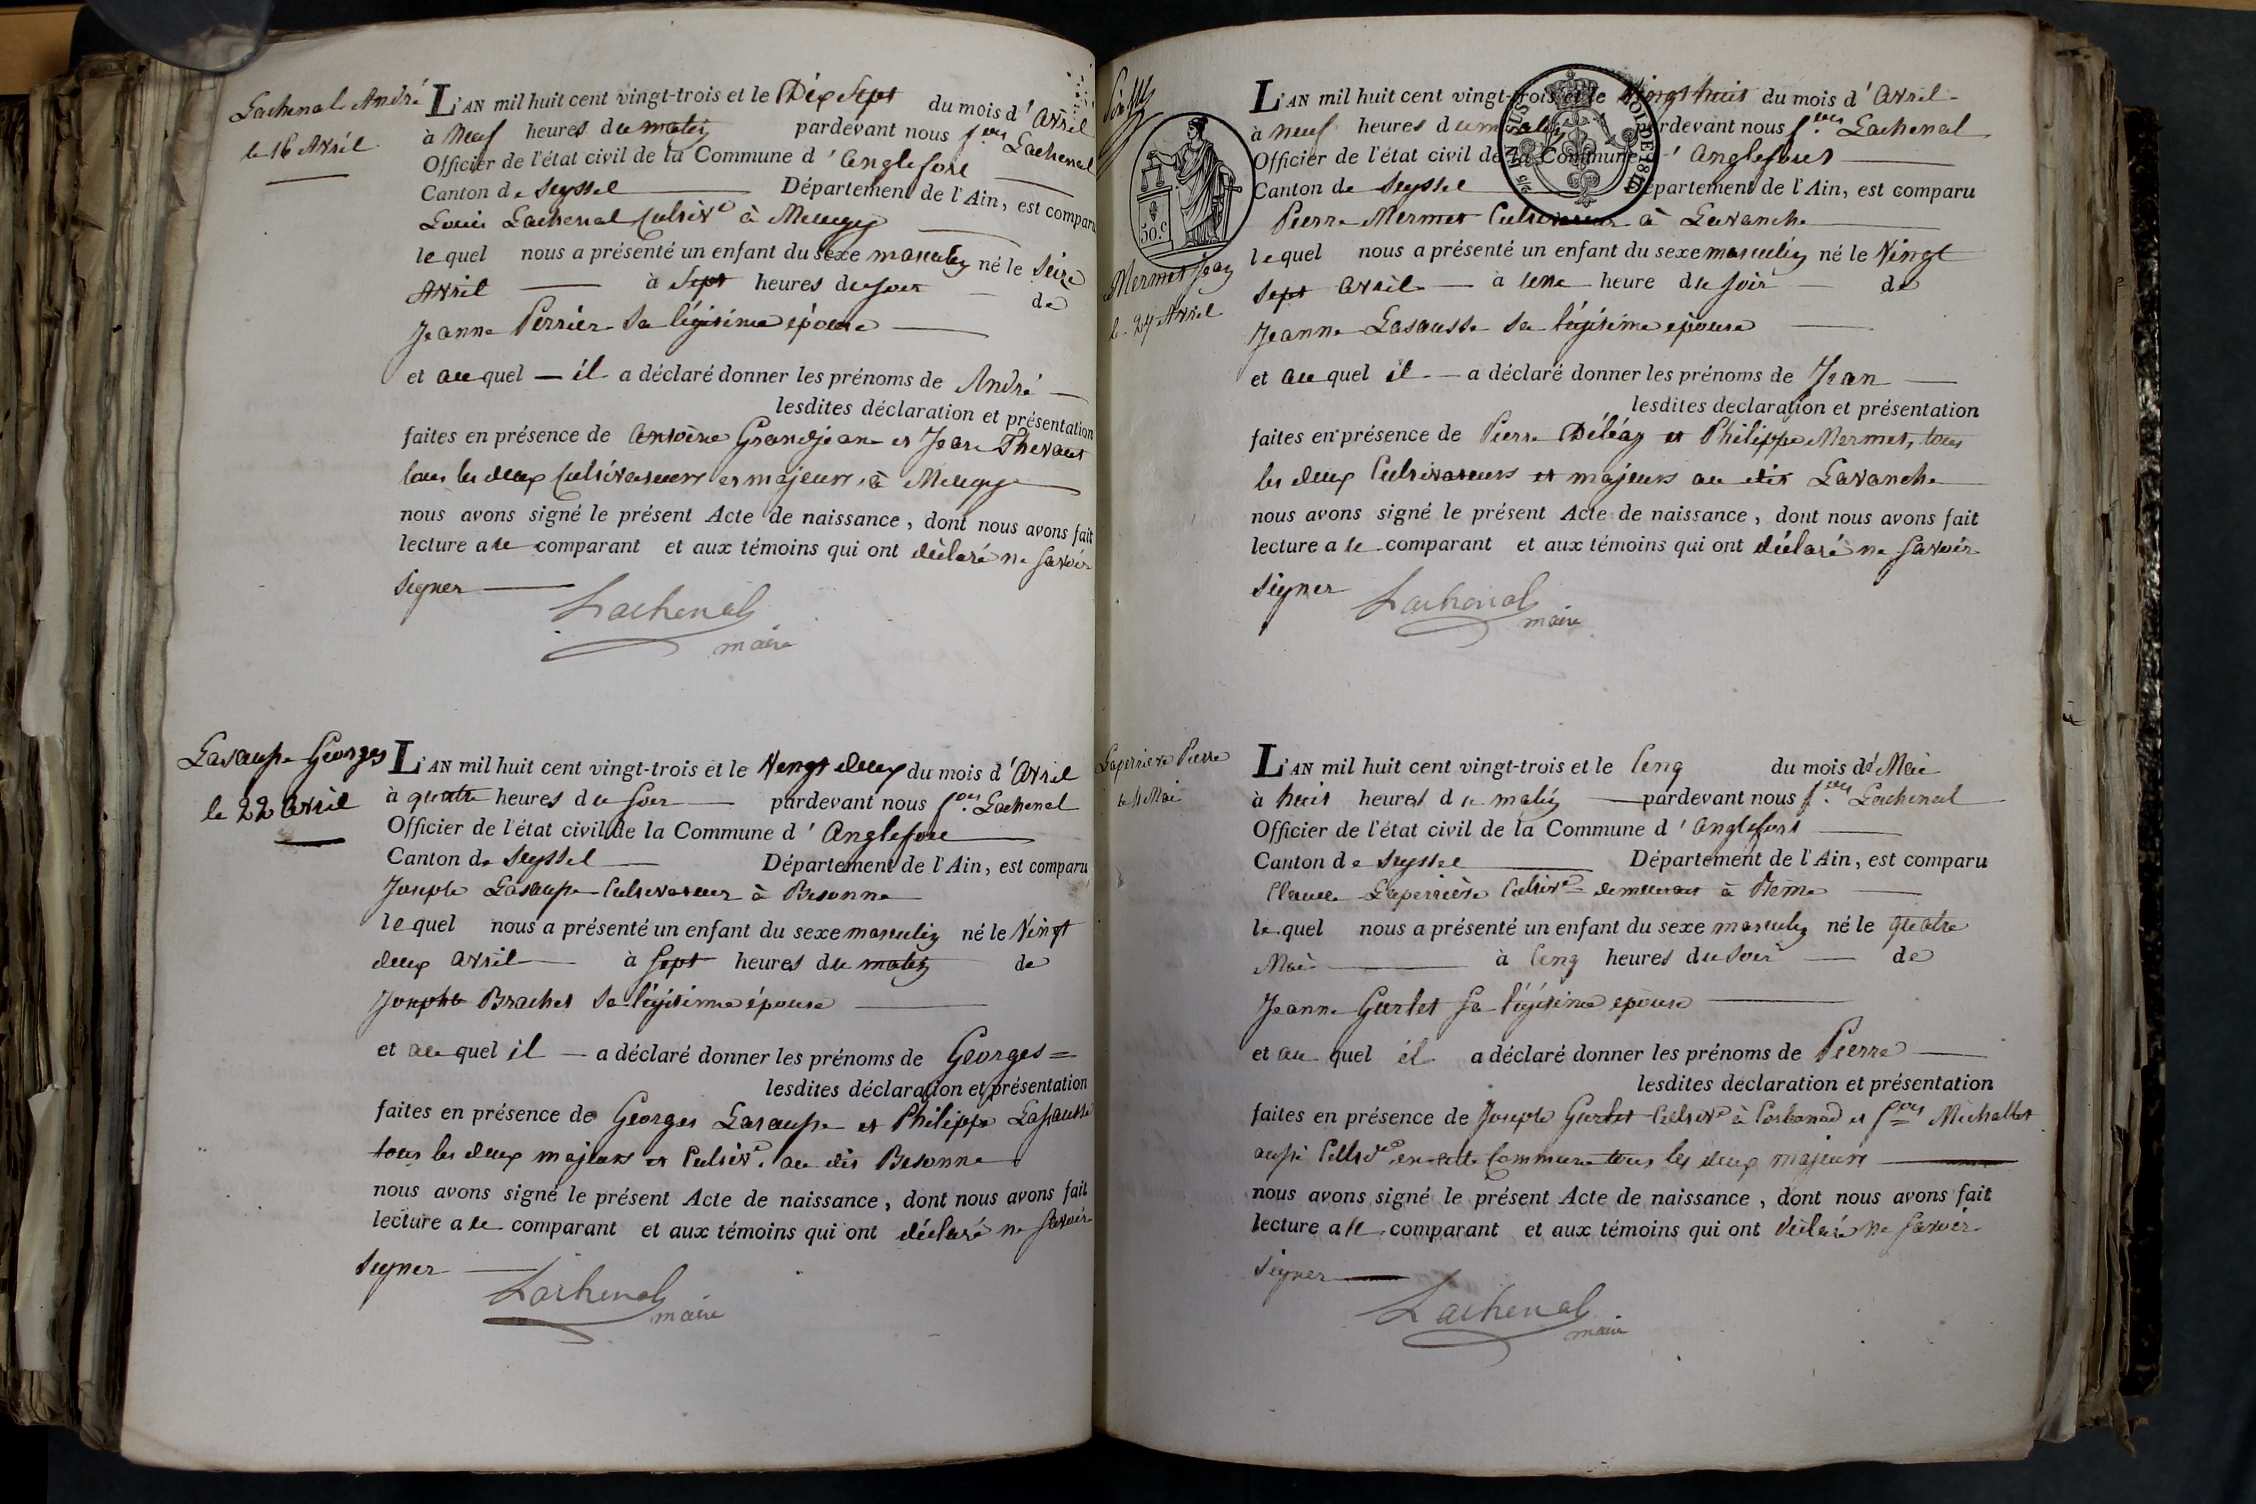 Lachenal André
le 16 Avril
L'AN mil huit cent vingt-trois et le Dix Sept du mois d' Avril
à Neuf heures du matin pardevant nous f.ois Lachenal
Officier de l'état civil de la Commune d' Anglefort
Canton de Seyssel Département de l'Ain, est comparu
Louis Lachenal Cultiv.r à Meugy
lequel nous a présenté un enfant du sexe masculin né le Seize
Avril à Sept heures du soir de
Jeanne Perrier sa légitime épouse
et au quel il a déclaré donner les prénoms de André
lesdites déclaration et présentation
faites en présence de Antoine Grandjean et Jean Thevenet
tous les deux Cultivateurs et majeurs à Meugy
nous avons signé le présent Acte de naissance, dont nous avons fait
lecture a le comparant et aux témoins qui ont déclaré ne savoir
signer
Lachenal
maire
Lasausse Georges
le 22 avril
L'AN mil huit cent vingt-trois et le Vingt deux du mois d' Avril
à quatre heures du soir pardevant nous f.ois Lachenal
Officier de l'état civil de la Commune d' Anglefort
Canton de Seyssel Département de l'Ain, est comparu
Joseph Lasausse Cultivateur à Bezonne
lequel nous a présenté un enfant du sexe masculin né le Vingt
deux avril à Sept heures du matin de
Josephte Brachet sa légitime épouse
et au quel il a déclaré donner les prénoms de Georges =
lesdites déclaration et présentation
faites en présence de Georges Lasausse et Philippe Lasausse
tous les deux majeurs et Cultiv.r au dit Besonne
nous avons signé le présent Acte de naissance, dont nous avons fait
lecture a le comparant et aux témoins qui ont déclaré ne savoir
signer
Lachenal
maire
50.c
Mermet Jean
le 27 Avril
L'AN mil huit cent vingt-trois et le Vingt huit du mois d' Avril
à neuf heures du matin pardevant nous f.ois Lachenal
Officier de l'état civil de la Commune d' Anglefort
Canton de Seyssel Département de l'Ain, est comparu
Pierre Mermet Cultivateur à Lavanche
lequel nous a présenté un enfant du sexe masculin né le Vingt
Sept avril à une heure du soir de
Jeanne Lasausse sa légitime épouse
et au quel il a déclaré donner les prénoms de Jean
lesdites declaration et présentation
faites en présence de Pierre Déléaz et Philippe Mermet, tous
les deux Cultivateurs et majeurs au dit Lavanche
nous avons signé le présent Acte de naissance, dont nous avons fait
lecture a le comparant et aux témoins qui ont déclaré ne savoir
signer
Lachenal
maire
Laperriere Pierre
le 4 Mai
L'AN mil huit cent vingt-trois et le Cinq du mois de Mai
à huit heures du matin pardevant nous f.ois Lachenal
Officier de l'état civil de la Commune d' Anglefort
Canton de Seyssel Département de l'Ain, est comparu
Claude Laperrière Cultiv.r demeurant à Rème
lequel nous a présenté un enfant du sexe masculin né le quatre
Mai à Cinq heures du soir de
Jeanne Gurlet sa légitime épouse
et au quel il a déclaré donner les prénoms de Pierre
lesdites déclaration et présentation
faites en présence de Joseph Gurlet Cultiv.r à Corbonod et f.ois Michallet
aussi Cultiv.r en cette Commune tous les deux majeurs
nous avons signé le présent Acte de naissance, dont nous avons fait
lecture a le comparant et aux témoins qui ont déclaré ne savoir
signer
Lachenal
maire